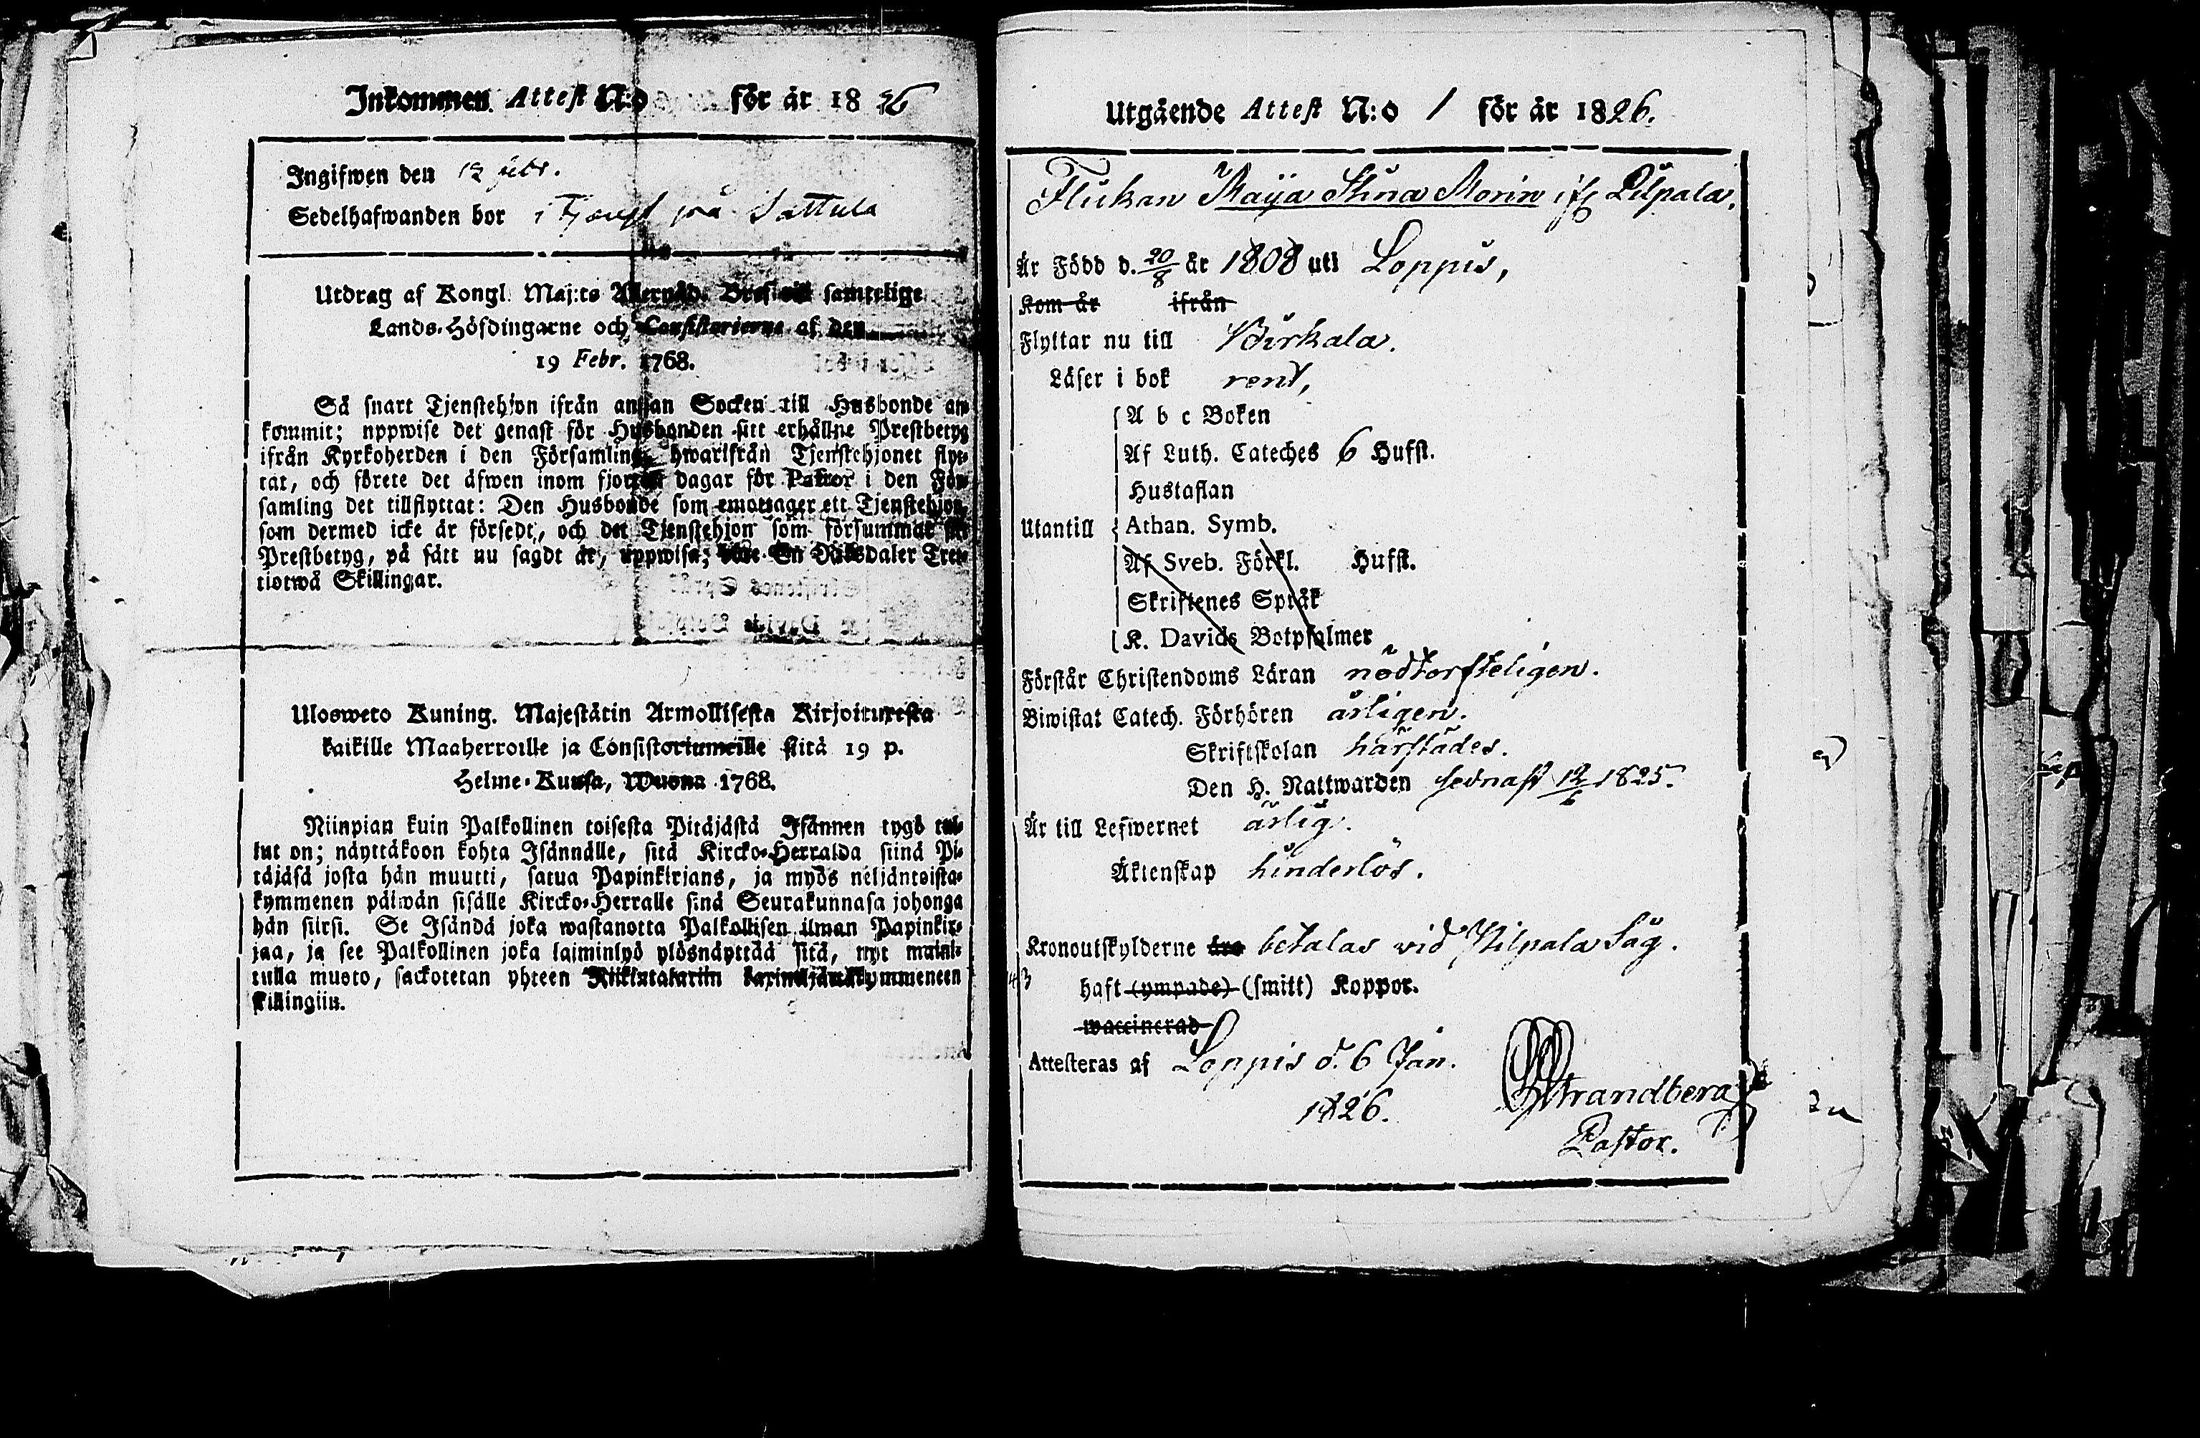 Inkommen Attest N:o för år 1826
Ingifwen den 12 febr.
Sedelhafwanden bor i Tjenst på Sattula
Utdrag af Kongl. Maj:ts Allernåd. Bref till samtelige
Lands-Höfdingarne och Consistorierne af den
19 Febr. 1768.
Så snart Tjenstehjon ifrån annan Socken till Husbonde an-
kommit; uppwise det genast för Husbonden sitt erhållne Prestbetyg
ifrån Kyrkoherden i den Församling, hwarifrån Tjenstehjonet flyt-
tat, och förete det äfwen inom fjorton dagar för Pastor i den För-
samling det tillflyttat: Den Husbonde som emottager ett Tjenstehjon,
som dermed icke är försedt, och det Tjenstehjon som försummar sitt
Prestbetyg, på sätt nu sagdt är, uppwisa; böte En Riksdaler Tret-
tiotwå Skillingar.
Ulosweto Kuning. Majestätin Armollisesta Kirjoituresta
kaikille Maaherroille ja Consistoriumeille siitä 19 p.
Helme-Kuusa, Wuonna 1768.
Niinpian kuin Palkollinen toisesta Pitäjästä Isännen tygö tul-
lut on; näyttäkoon kohta Isännälle, sitä Kircko-Herralda siinä Pi-
täjäsä josta hän muutti, satua Papinkirjans, ja myös neljäntoista-
kymmenen päiwän sisälle Kircko-Herralle sinä Seurakunnasa johonga
hän siirsi. Se Isändä joka wastanotta Palkollisen ilman Papinkir-
jaa, ja see Palkollinen joka laiminlyö ylösnäyttää sitä, nyt maini-
tulla muoto, sackotetan yhteen Riikintalariin kaxineljättäkymmeneen
killingiin.
Utgående Attest N:o 1 för år 1826.
Flickan Maija Stina Morin ifr Pilpala.
Är Född d. 20/8 år 1808 uti Loppis,
Kom år ifrån
Flyttar nu till Birkala.
Läser i bok rent,
A b c Boken
Af Luth. Cateches 6 Hufst.
Hustaflan
Utantill Athan. Symb.
Af Sveb. Förkl. Hufst.
Skriftenes Språk
K. Davids Botpsalmer
Förstår Christendoms Läran nödtorfteligen.
Biwistat Catech. Förhören årligen.
Skriftskolan härstädes.
Den H. Nattwarden sednast 12/6 1825.
Är till Lefwernet ärlig.
Äktenskap hinderlös.
Kronoutskylderne äro betalas vid Pilpala Såg.
haft (ympade) (smitt) Koppor.
waccinerad
Attesteras af Loppis d. 6 Jan.
1826.
Strandberg
Pastor.